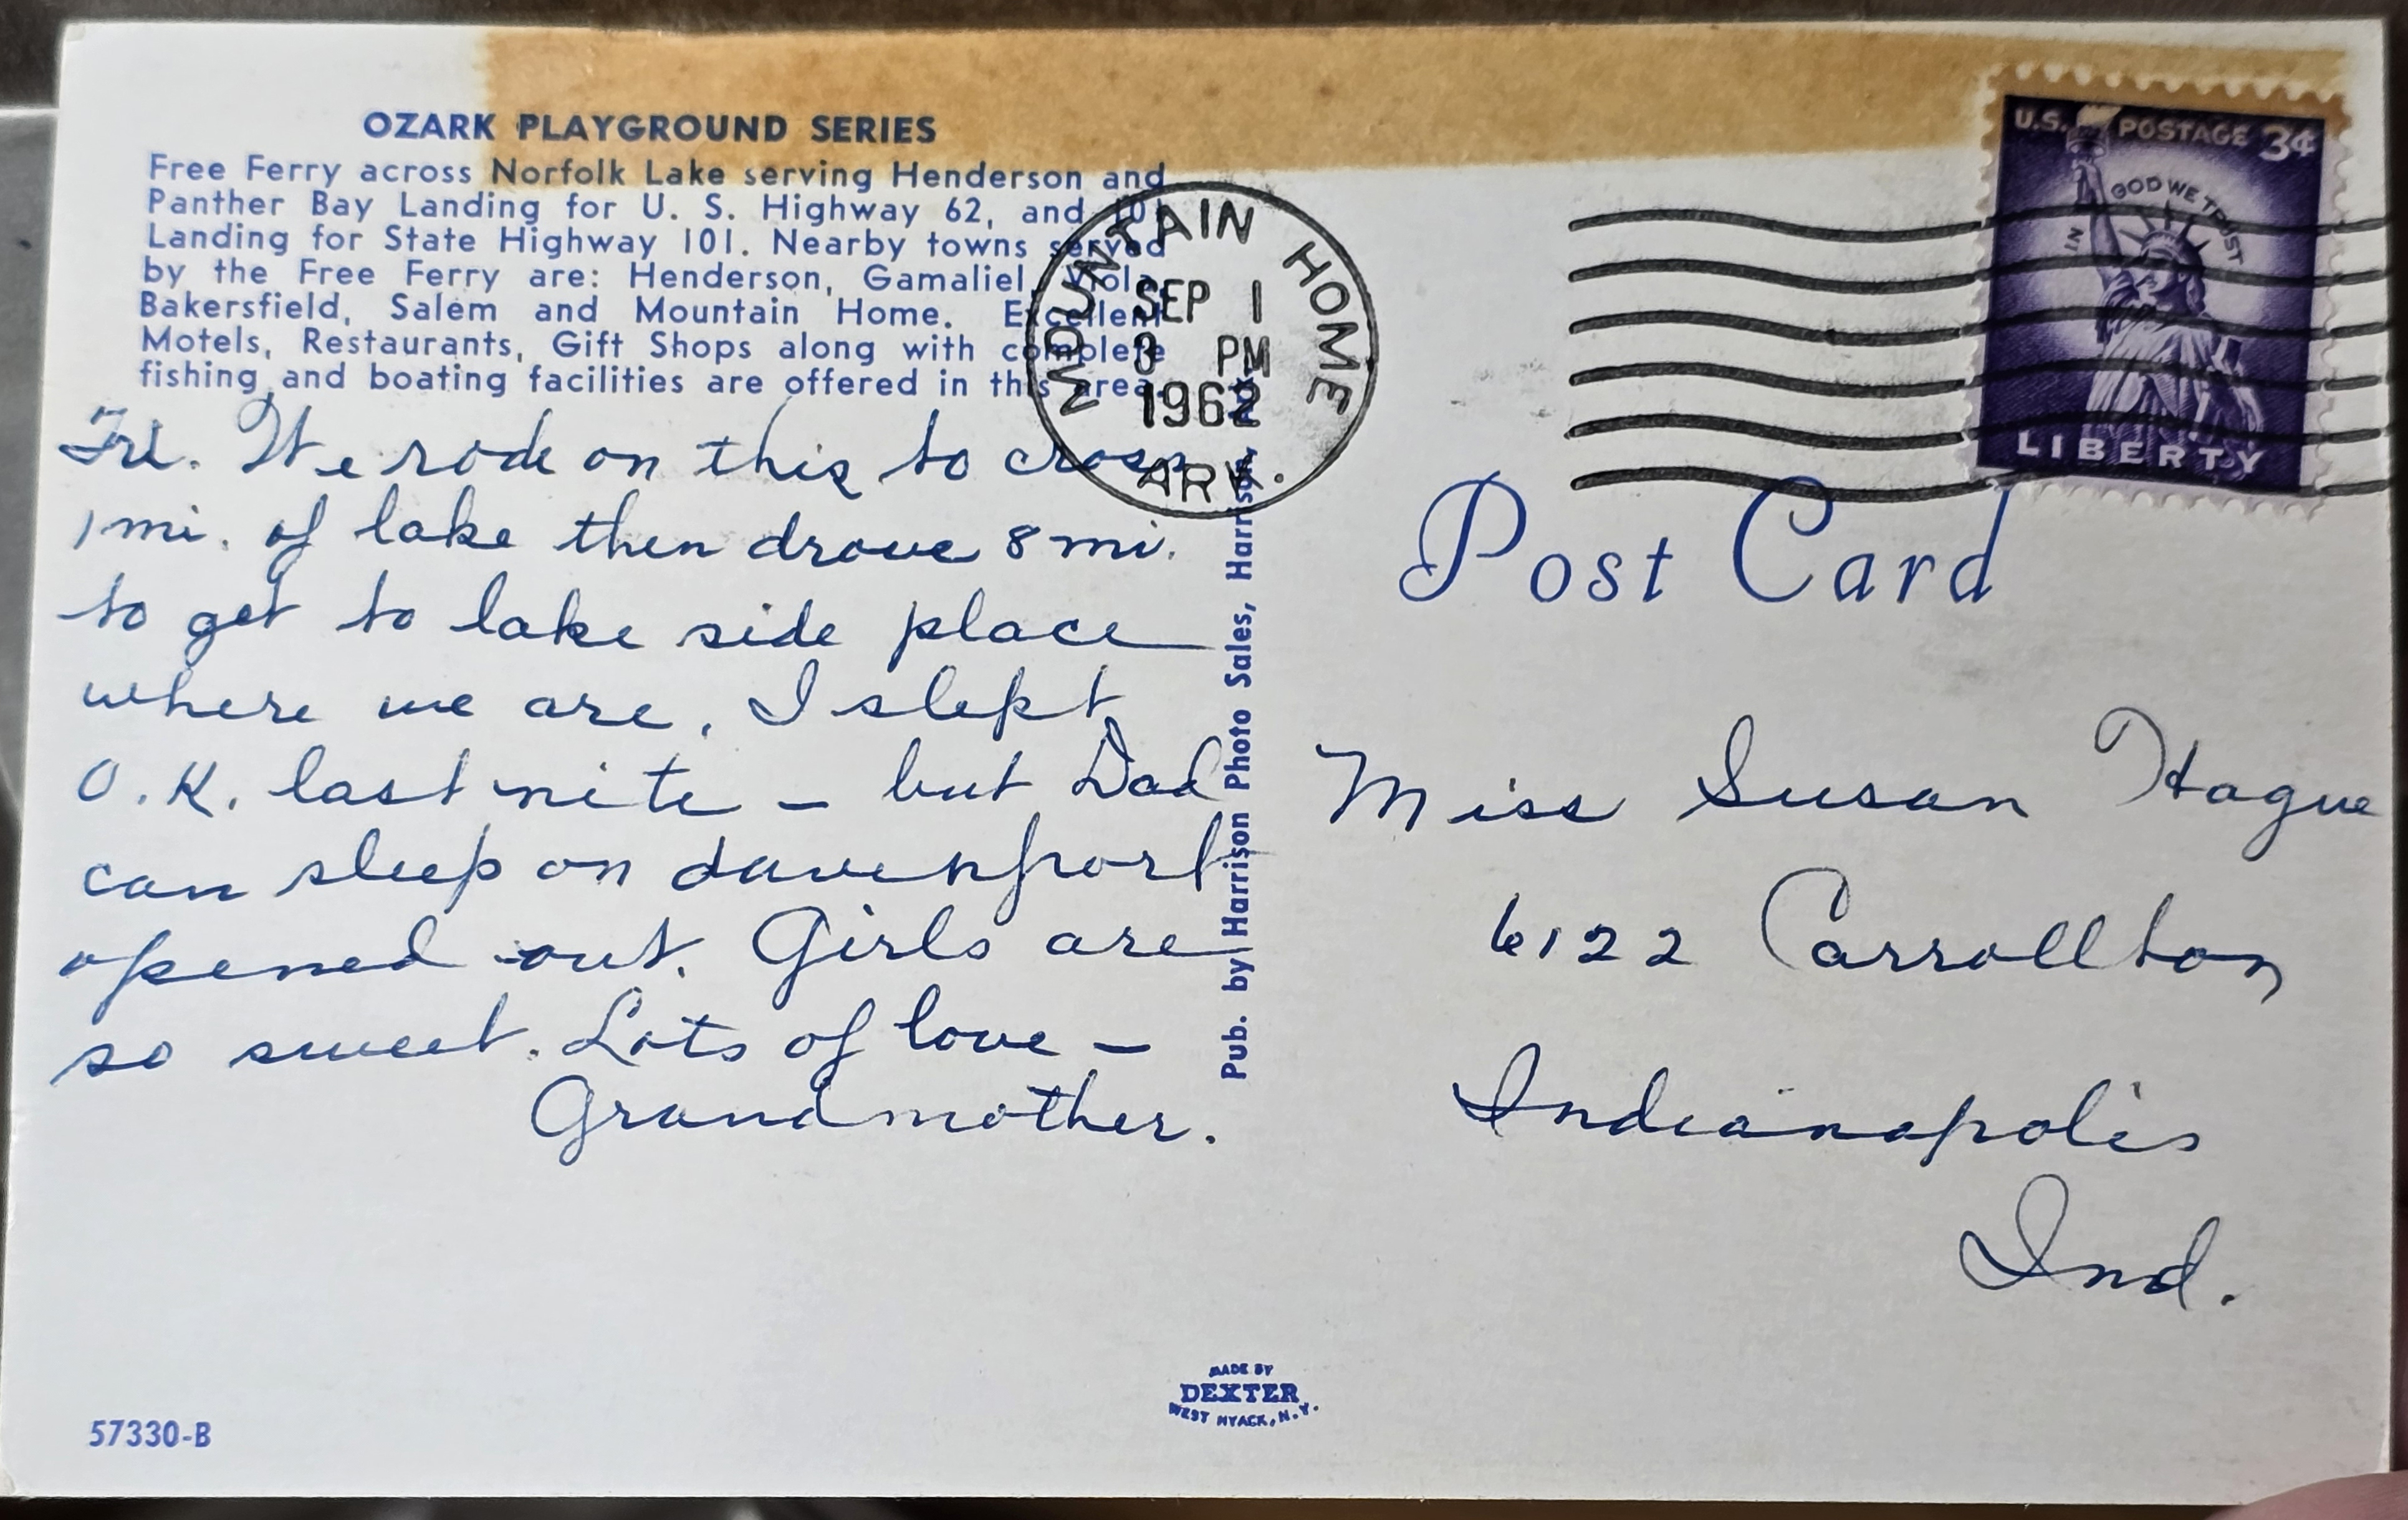 OZARK PLAYGROUND SERIES
Free Ferry across Norfolk Lake serving Henderson and
Panther Bay Landing for U. S. Highway 62, and 101
Landing for State Highway 101. Nearby towns served
by the Free Ferry are: Henderson, Gamaliel, Viola,
Bakersfield, Salem and Mountain Home. Excellent
Motels, Restaurants, Gift Shops along with complete
fishing and boating facilities are offered in this area.
Fri. We rode on this to cross
1 mi. of lake then drove 8 mi.
to get to lake side place
where we are. I slept
O.K. last nite – but Dad
can sleep on davenport
opened out. Girls are
so sweet. Lots of love –
Grandmother.
57330-B
MOUNTAIN HOME
SEP 1
3 PM
1962
ARK.
Pub. by Harrison Photo Sales, Harrison,
MADE BY
DEXTER
WEST NYACK, N.Y.
U.S. POSTAGE 3¢
IN GOD WE TRUST
LIBERTY
Post Card
Miss Susan Hague
6122 Carrollton
Indianapolis
Ind.